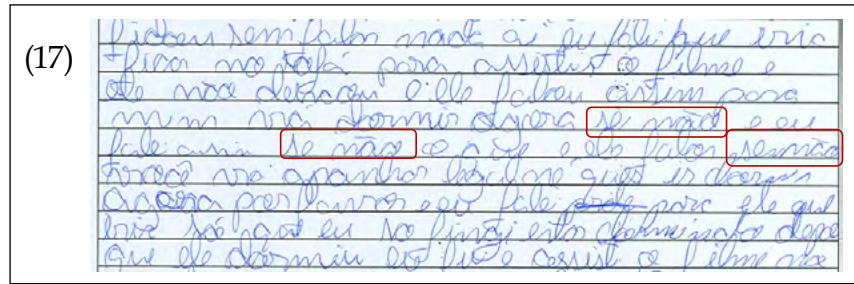 (17)
ficou sem falar nada aí eu fali que iria
fica no sofá para assistir o filme e
ele não deixou e ele falou assim para
mim vá dormir agora se não e eu
fale assim se não o que e ele falou senão
você vai apanhar
agora por favor e eu fale para ele que
eu so fingi
que ele dormiu eu fui e assisti o filme